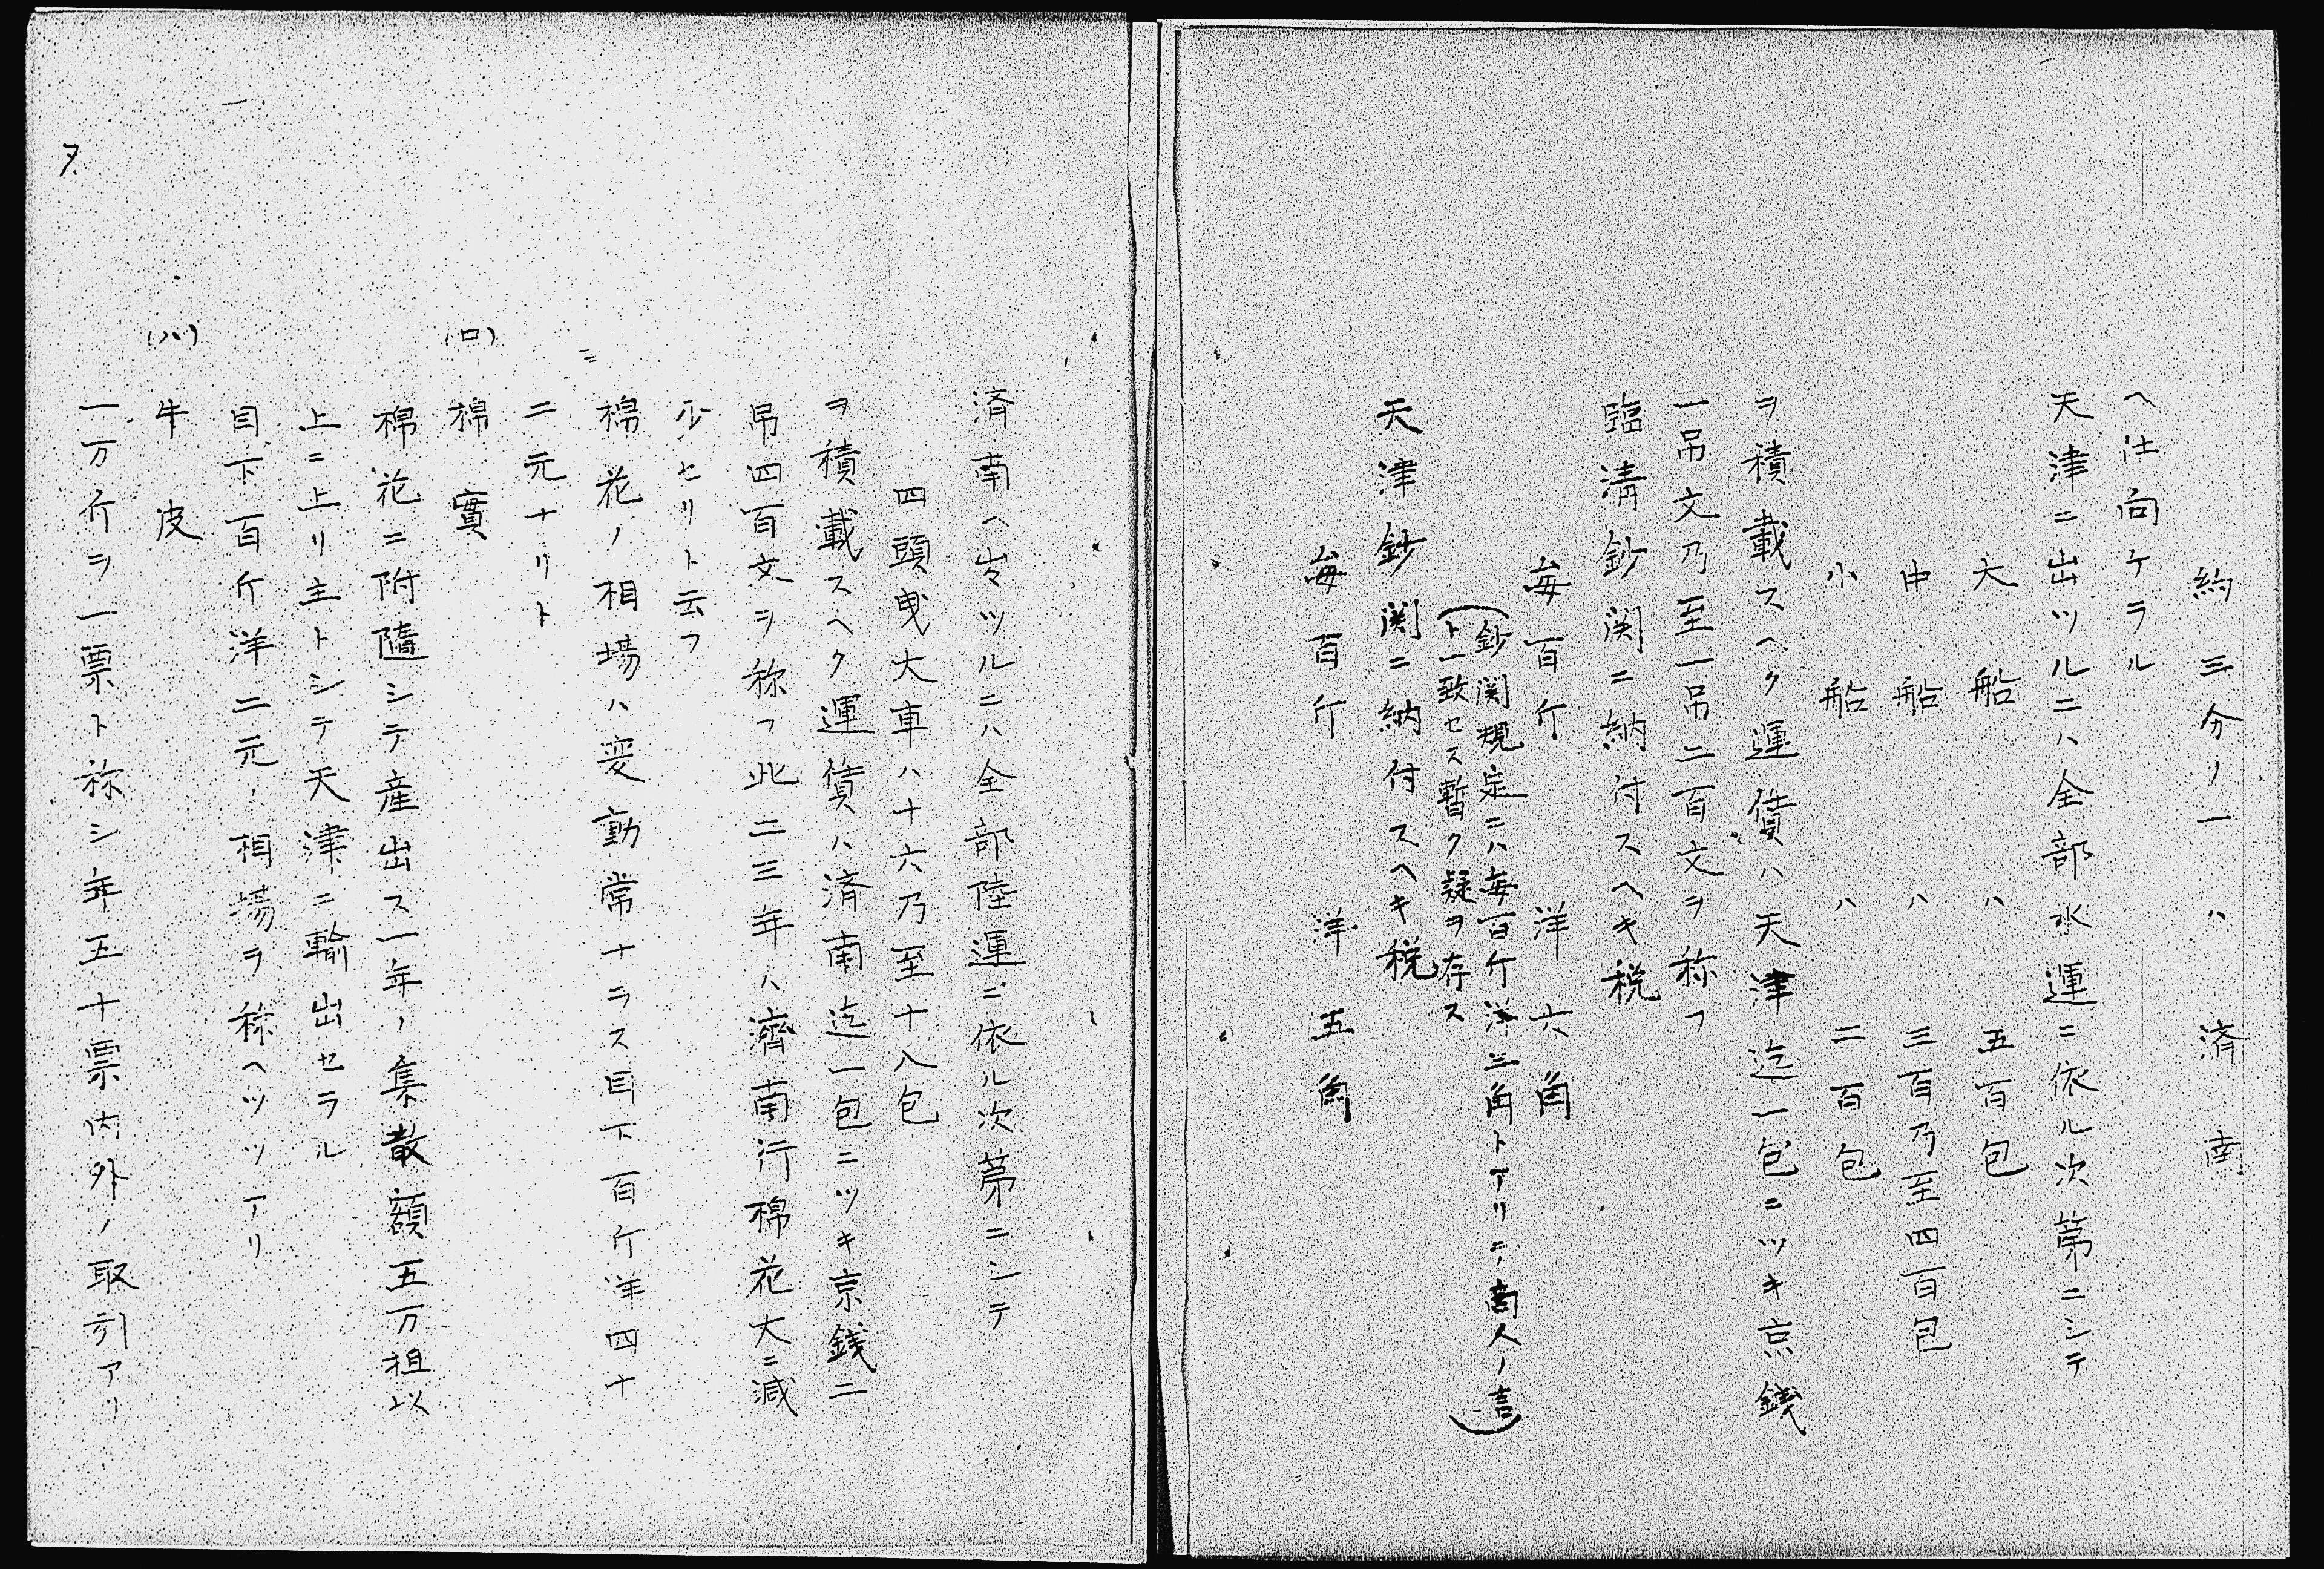 約三分ノ一ハ済南
ヘ仕向ケラル
天津ニ出ツルニハ全部水運ニ依ル次第ニシテ
大船ハ五百包
中船ハ三百乃至四百包
小船ハ二百包
ヲ積載スヘク運賃ハ天津迄一包ニツキ京銭
一吊文乃至一吊二百文ヲ称フ
臨清鈔関ニ納付スヘキ税
毎百斤洋六角
(鈔関規定ニハ毎百斤洋三角トアリテ商人ノ言
ト一致セス暫ク疑ヲ存ス)
天津鈔関ニ納付スヘキ税
毎百斤洋五角
済南ヘ出ツルニハ全部陸運ニ依ル次第ニシテ
四頭曳大車ハ十六乃至十八包
ヲ積載スヘク運賃ハ済南迄一包ニツキ京銭二
吊四百文ヲ称フ此二三年ハ濟南行棉花大ニ減
少セリト云フ
棉花ノ相場ハ変動常ナラス目下百斤洋四十
二元ナリト
(ロ)棉實
棉花ニ附随シテ産出ス一年ノ集散額五万担以
上ニ上リ主トシテ天津ニ輸出セラル
目下百斤洋二元ノ相場ヲ称ヘツツアリ
(ハ)牛皮
一万斤ヲ一票ト称シ年五十票内外ノ取引アリ